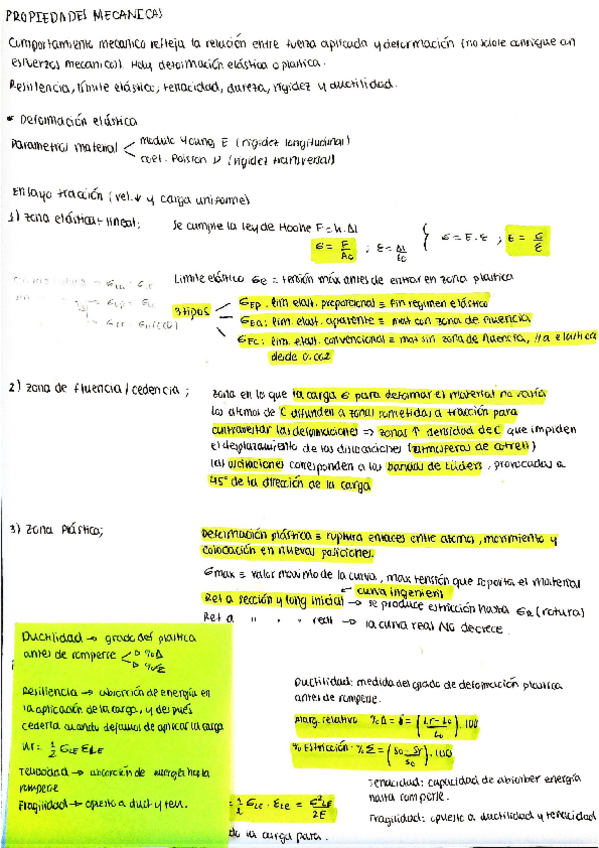 PROPIEDADES MECANICAS
Comportamiento mecanico refleja la relación entre fuerza aplicada y deformación
esfuerzos mecanicos). Hay deformación elástica o plastica.
Resilencia, límite elástico, tenacidad, dureza, rigidez y ductilidad.
* Deformación elástica
Parametros material < modulo Young, E (rigidez longitudinal)
coef. Poisson ν (rigidez transversal)
Ensayo tracción (vel.↓ y carga uniforme)
1) zona elástica-lineal; Se cumple la ley de Hooke F=k.Δl
σ = F/A₀ ; ε = Δl/l₀ { σ = E.ε ; E = σ/ε
Limite elástico σe = tensión máx antes de entrar en zona plastica
3 tipos
σEp: lim elast. proporcional ≡ fin regimen elástico
σEa: lim. elast. aparente ≡ mat con zona de fluencia
σEc: lim. elast. convencional ≡ mat sin zona de fluencia, // a elastica
desde 0.002
2) zona de fluencia / cedencia ; zona en la que la carga σ para deformar el material no varía
Los atomos de C difunden a zonas sometidas a tracción para
contrarrestar las deformaciones ⇒ zonas ↑ densidad de C que impiden
el desplazamiento de las dislocaciones (atmosferas de cotrell)
las oscilaciones corresponden a las bandas de Lüders, provocadas a
45° de la dirección de la carga
3) zona Plástica; Deformación plástica ≡ ruptura enlaces entre atomos, movimiento y
colocación en nuevas posiciones.
σmax ≡ valor maximo de la curva, max tensión que soporta el material
curva ingenieril
Ref a sección y long inicial → se produce estricción hasta σR (rotura)
Ref a " " " real → la curva real NO decrece.
Ductilidad → grado def plastica
antes de romperse < %Δ
%Σ
Resiliencia → absorción de energía en
la aplicación de la carga, y después
cederla cuando dejamos de aplicar la carga
Ur = 1/2 σLE εLE
Tenacidad → absorción de energía hasta
romperse
Fragilidad → opuesto a duct y ten.
Ductilidad: medida del grado de deformación plastica
antes de romperse.
Alarg. relativo %Δ = δ = (Lr-L₀/L₀).100
% Estricción: %Σ = (S₀-Sr/S₀).100
Tenacidad: capacidad de absorber energía
hasta romperse.
= 1/2 σLE . εLE = σ²LE/2E
Fragilidad: opuesto a ductilidad y tenacidad
de la carga para.